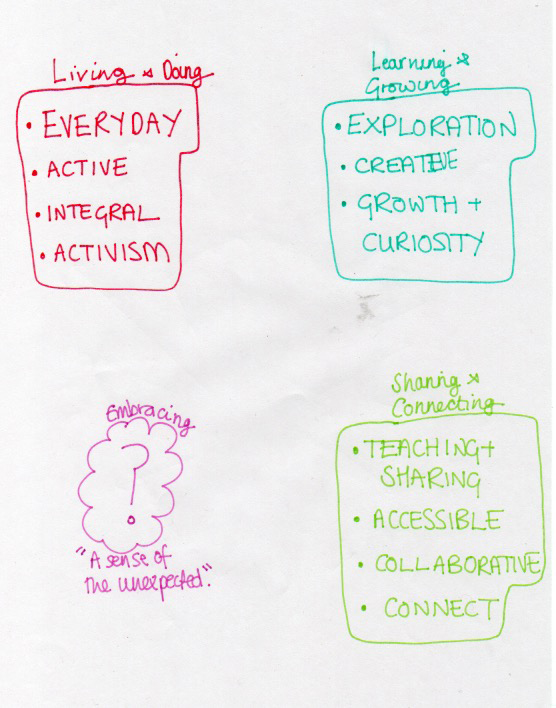 Living & Doing
• EVERYDAY
• ACTIVE
• INTEGRAL
• ACTIVISM
Learning &
Growing
• EXPLORATION
• CREATIVE
• GROWTH +
CURIOSITY
Embracing
?
"A sense of
the unexpected."
Sharing &
Connecting
• TEACHING +
SHARING
• ACCESSIBLE
• COLLABORATIVE
• CONNECT